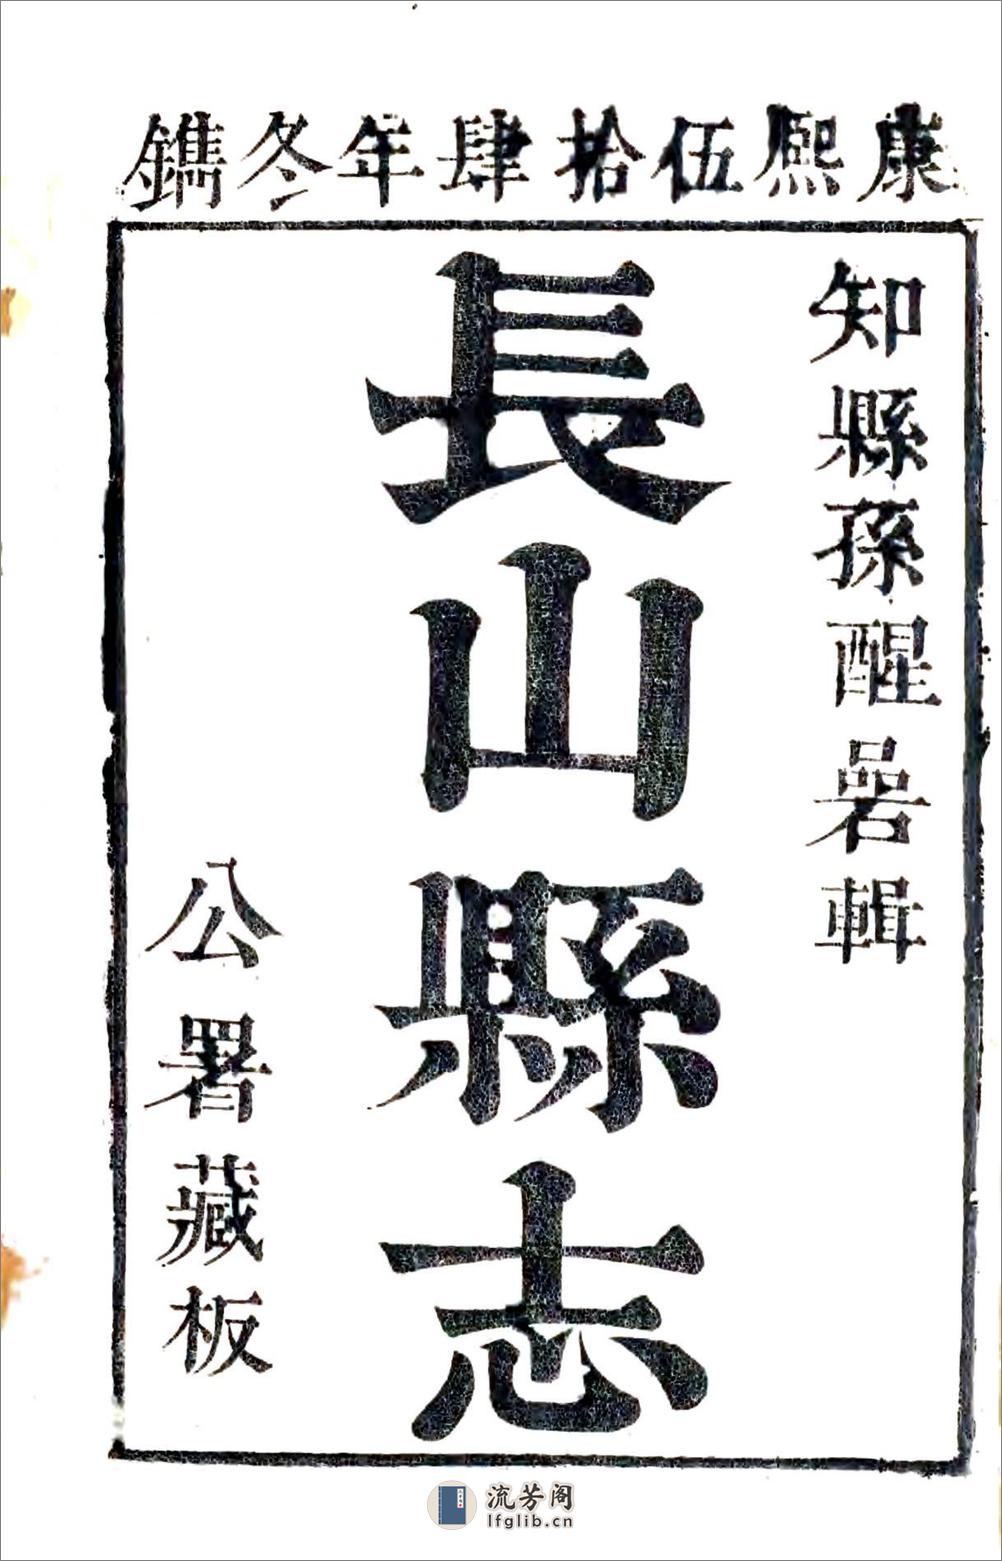 康熙伍拾肆年冬鐫
知縣孫醒碞輯
長山縣志
公署藏板
流芳阁
lfglib.cn